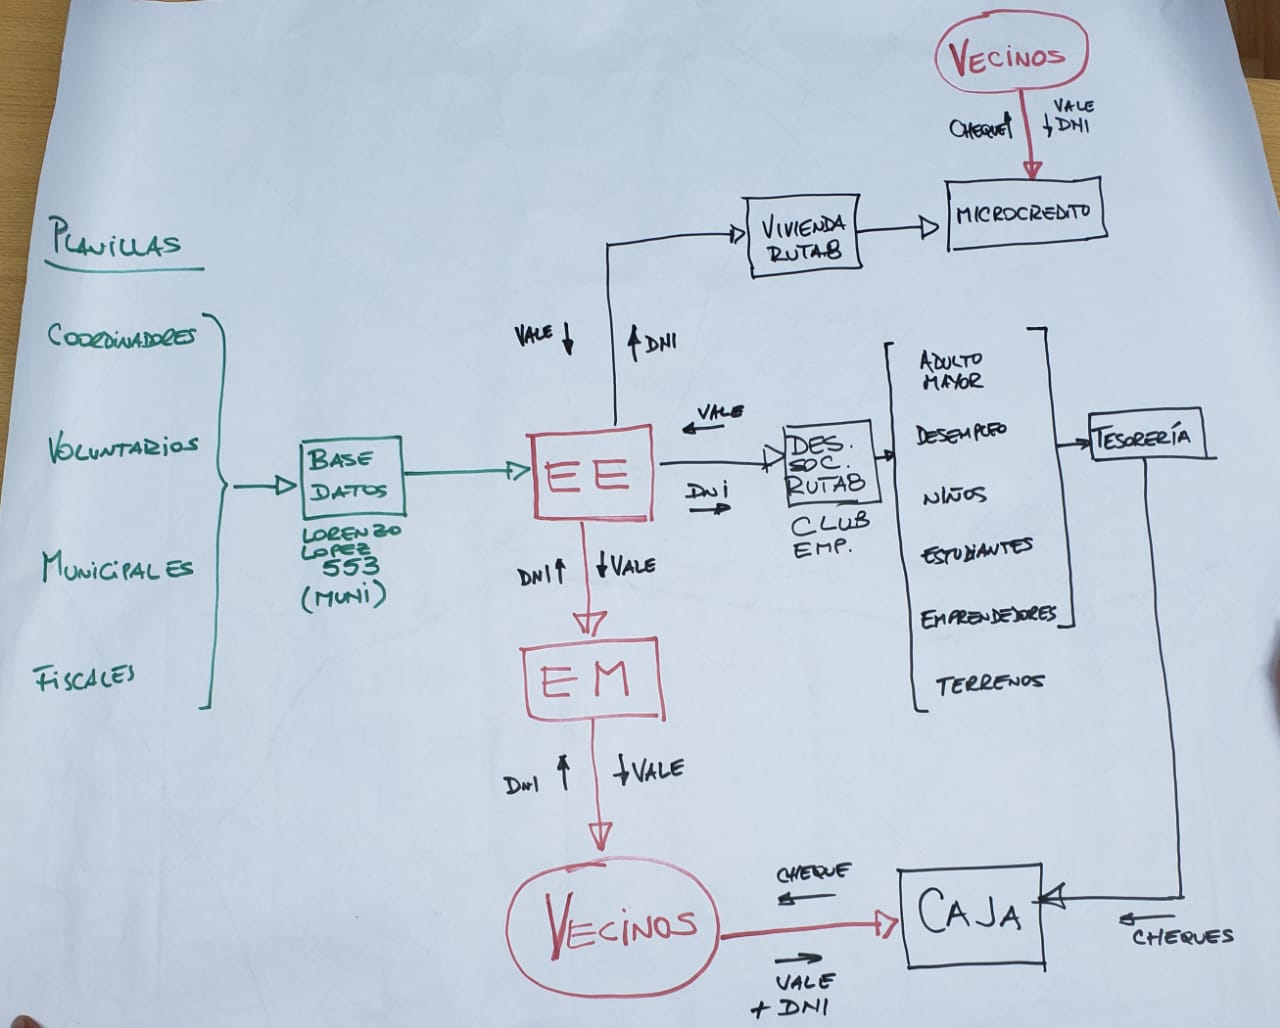 VECINOS
CHEQUE
VALE
DNI
MICROCREDITO
VIVIENDA
RUTA8
PLANILLAS
COORDINADORES
VOLUNTARIOS
MUNICIPALES
FISCALES
BASE
DATOS
LORENZO
LOPEZ
553
(MUNI)
VALE
DNI
EE
VALE
DNI
DES.
SOC.
RUTA8
CLUB
EMP.
ADULTO
MAYOR
DESEMPLEO
NIÑOS
ESTUDIANTES
EMPRENDEDORES
TERRENOS
TESORERÍA
DNI
VALE
EM
DNI
VALE
VECINOS
CHEQUE
VALE
+ DNI
CAJA
CHEQUES